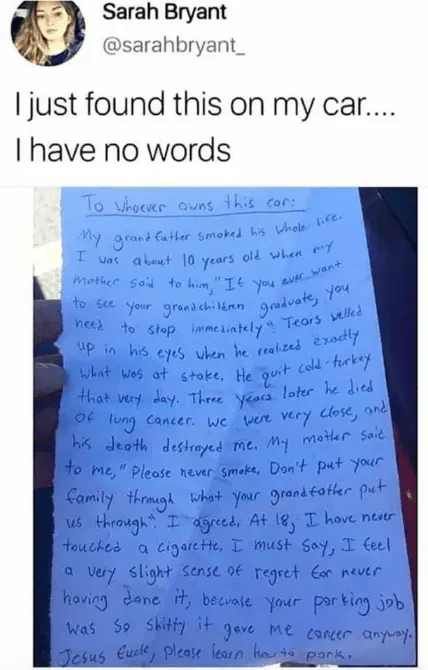 Sarah Bryant
@sarahbryant_
I just found this on my car....
I have no words
To whoever owns this car:
My grandfather smoked his whole life.
I was about 10 years old when my
mother said to him, "If you ever want
to see your grandchildren graduate, you
need to stop immediately". Tears welled
up in his eyes when he realized exactly
what was at stake. He quit cold-turkey
that very day. Three years later he died
of lung cancer. We were very close, and
his death destroyed me. My mother said
to me, "Please never smoke, Don't put your
family through what your grandfather put
us through". I agreed. At 18, I have never
touched a cigarette. I must say, I feel
a very slight sense of regret for never
having done it, because your parking job
was so shitty it gave me cancer anyway.
Jesus fuck, please learn how to park.